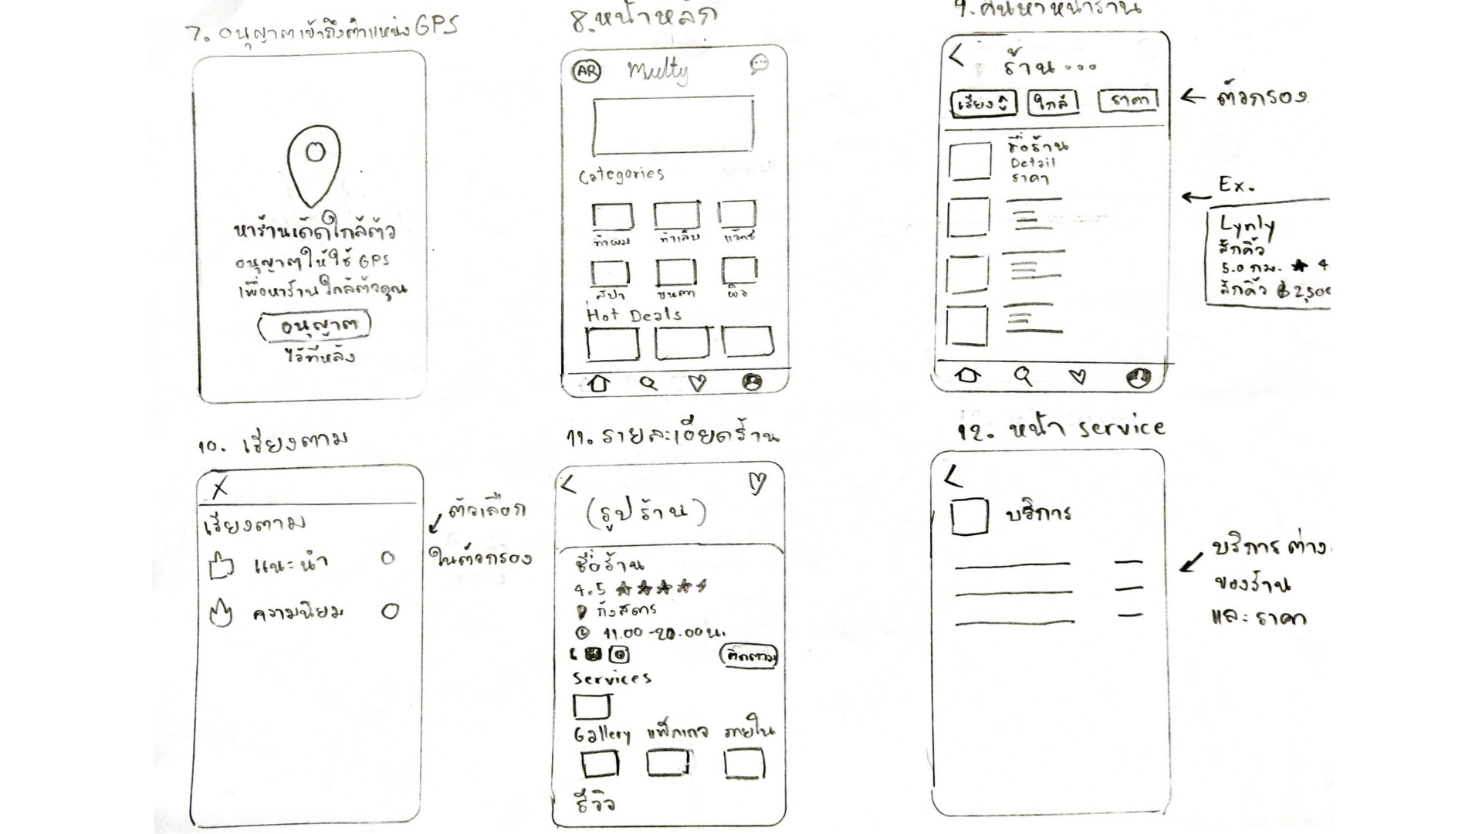 7. อนุญาตเข้าถึงตำแหน่ง GPS
หาร้านเด็ดใกล้ตัว
อนุญาตให้ใช้ GPS
เพื่อหาร้านใกล้ตัวคุณ
อนุญาต
ไว้ทีหลัง
8. หน้าหลัก
AR Multy
Categories
ทำผม ทำเล็บ แว็กซ์
สปา ขนตา ผิว
Hot Deals
9. ค้นหาหน้าร้าน
ร้าน...
เรียง ใกล้ ราคา
ชื่อร้าน
Detail
ราคา
← ตัวกรอง
← Ex.
Lynly
สักคิ้ว
5.0 กม. ★ 4
สักคิ้ว ฿2,500
10. เรียงตาม
X
เรียงตาม
แนะนำ
ความนิยม
ตัวเลือก
ในตัวกรอง
11. รายละเอียดร้าน
(รูปร้าน)
ชื่อร้าน
4.5 ★★★★★
กังสดาร
11.00-20.00 น.
ติดตาม
Services
Gallery แพ็กเกจ ภายใน
รีวิว
12. หน้า service
บริการ
บริการต่าง
ของร้าน
และราคา